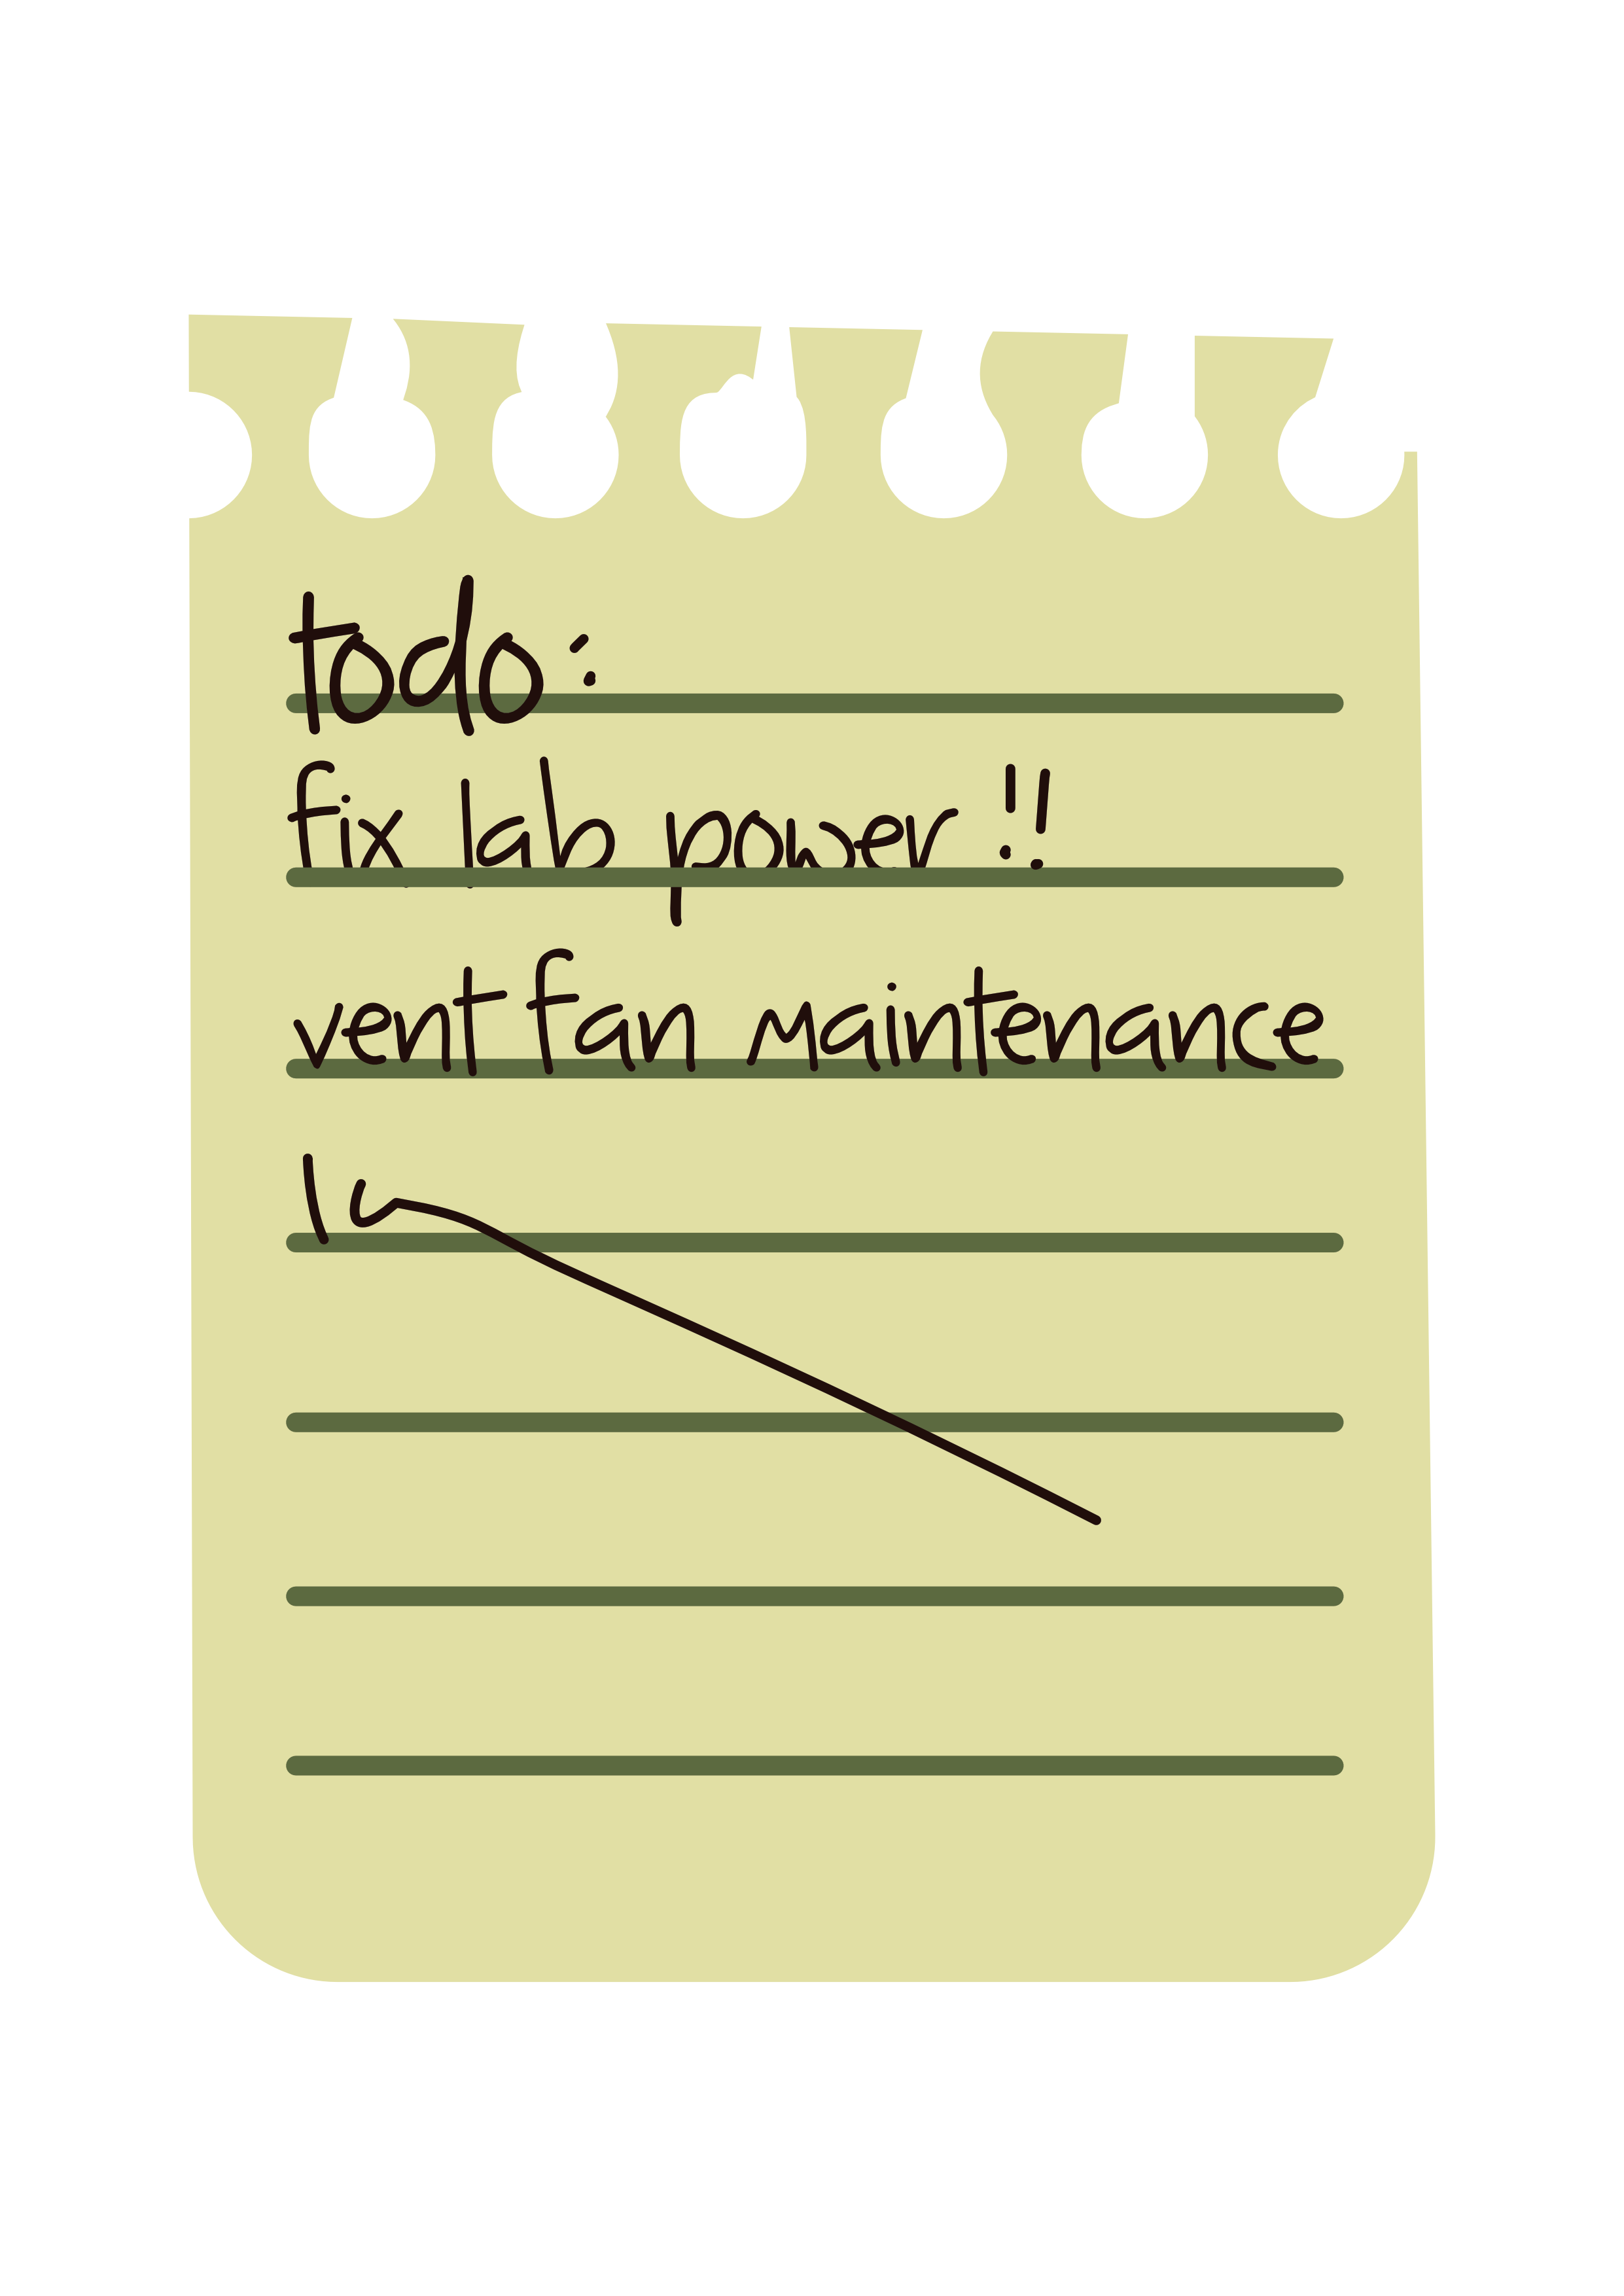 todo:
fix lab power !!
vent fan maintenance